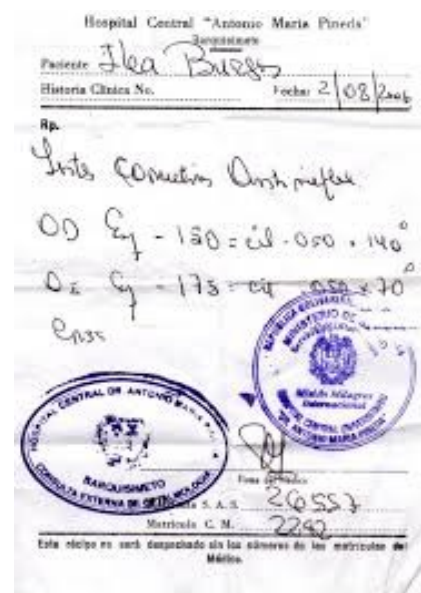 Hospital Central "Antonio Maria Pineda"
Barquisimeto
Paciente Ilea Burgos
Historia Clínica No. Fecha: 2/08/2006
Rp.
Lentes Correctivos Antireflex
OD Esf - 150 = cil - 050 x 140°
- 175 = cil - 050 x 70°
REPUBLICA BOLIVARIANA
MINISTERIO DE
Misión Milagro
Internacional
HOSPITAL CENTRAL UNIVERSITARIO
"DR. ANTONIO MARIA PINEDA"
HOSPITAL CENTRAL DR ANTONIO MARIA
BARQUISIMETO
CONSULTA EXTERNA DE OFTALMOLOGIA
Firma del Médico
S. A. S. 26557
Matrícula C. M. 2292
Este récipe no será despachado sin los números de las matrículas del
Médico.